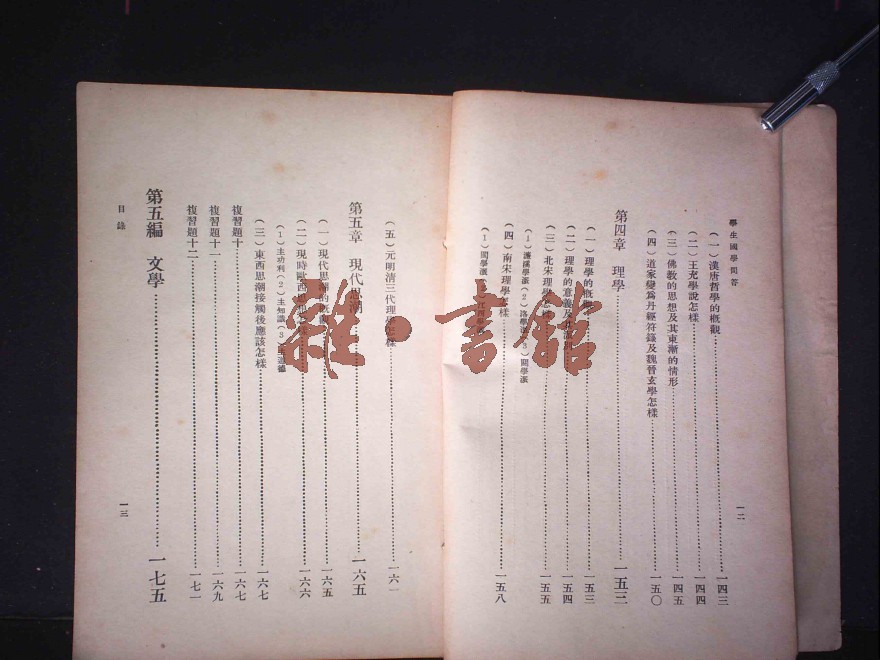 學生國學問答
(一)漢唐哲學的概觀……一四三
(二)王充學說怎樣……一四四
(三)佛教的思想及其東漸的情形……一四五
(四)道家變爲丹經符籙及魏晉玄學怎樣……一五〇
第四章 理學……一五三
(一)理學的概……一五三
(二)理學的意義及……一五四
(三)北宋理學怎樣……一五五
(1)濂溪學派(2)洛學派(3)關學派
(四)南宋理學怎樣……一五八
(1)閩學派
一二
(五)元明清三代理學怎樣……一六一
第五章 現代思潮……一六五
(一)現代思潮的概……一六五
(二)現時歐西思想……一六六
(1)主功利(2)主知識(3)主道德
(三)東西思潮接觸後應該怎樣……一六七
複習題十……一六七
複習題十一……一六九
複習題十二……一七一
第五編 文學……一七五
目錄
一三
雜·書館